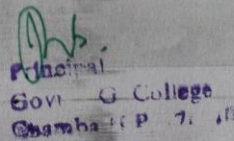 Principal,
Govt G College
Chamba H P